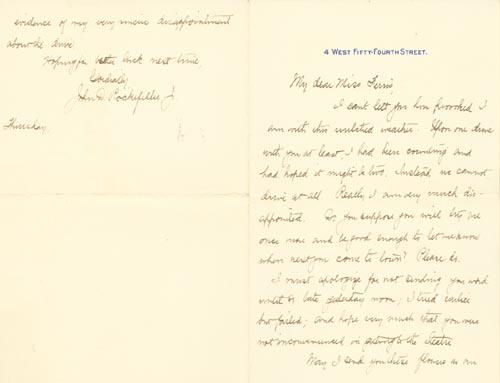 4 WEST FIFTY-FOURTH STREET.
My dear Miss
I can't tell you how provoked I
am with this wretched weather. Upon one drive
with you at least, I had been counting and
had hoped it might be two. Instead we cannot
drive at all Really, I am very much dis-
appointed. Do you suppose you will try me
once more and be good enough to let me know
when next you come to town? Please do.
I must apologize for not sending you word
until so late yesterday noon; I tried earlier
but failed; and hope very much that you were
not inconvenienced in getting to the theatre
May I send you these flowers as an
evidence of my very sincere disappointment
about the drive
Hoping for better luck next time,
Cordially
John D. Rockefeller Jr
Thursday.